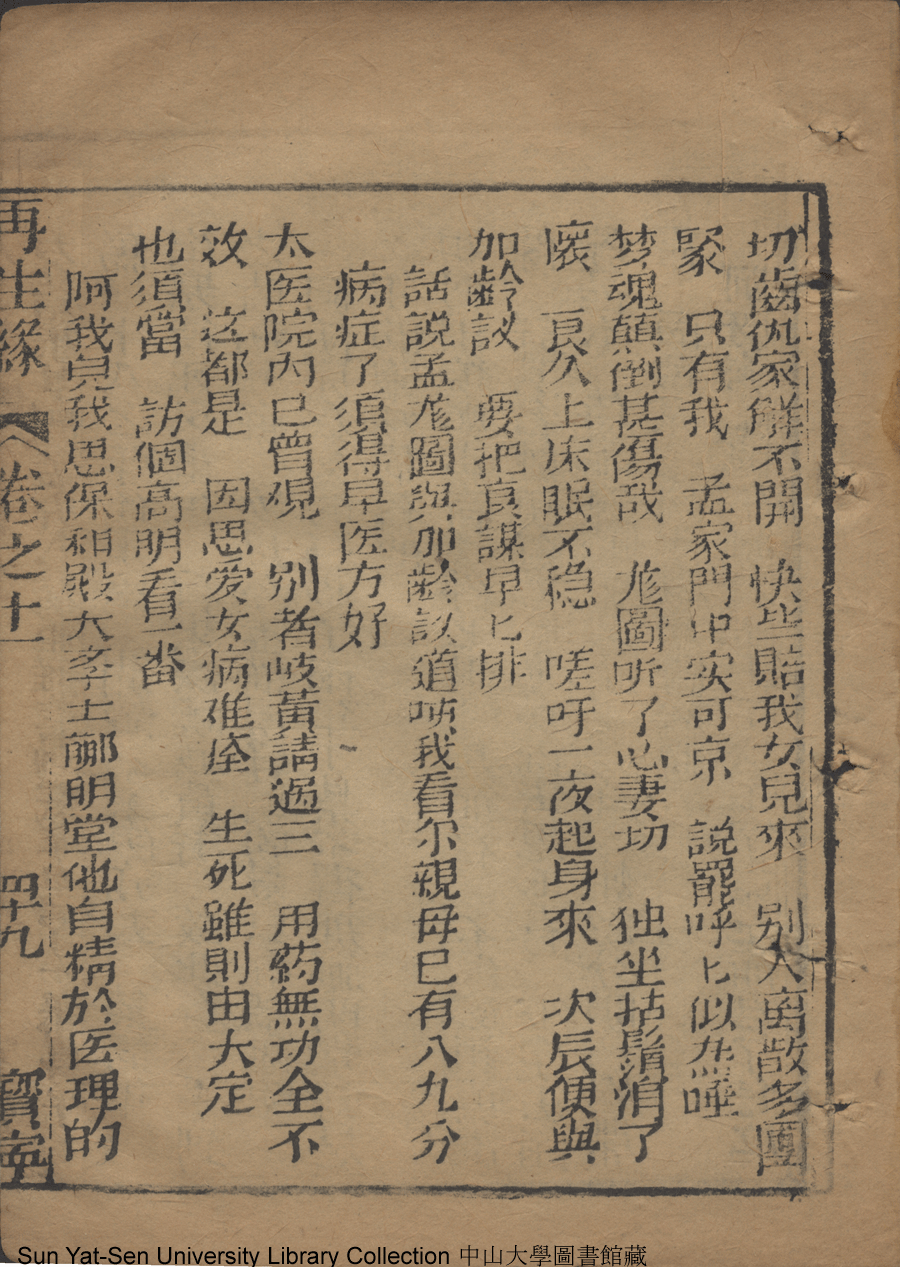 切齒仇家解不開　快些賠我女兒來　别人离散多團
聚　只有我　孟家門中实可京　說罷呼匕似𤇆唾
梦魂顛倒甚傷哉　龙圖听了心妻切　独坐拈鬚消了
懷　良久上床眠不稳　嗟吁一夜起身來　次辰便與
加齡議　要把良謀早匕排
話説孟龙圖與加齡議道呐我看尔親母已有八九分
病症了須得早医方好
太医院内已曾覌　别者岐黄請過三　用药無功全不
效　这都是　因思爱女病难痊　生死雖則由大定
也須當　訪個高明看一畨
阿我兒我思保和殿大孝士郦明堂他自精於医理的
再生緣　卷之十一　四十九　寳寧
Sun Yat-Sen University Library Collection 中山大學圖書館藏